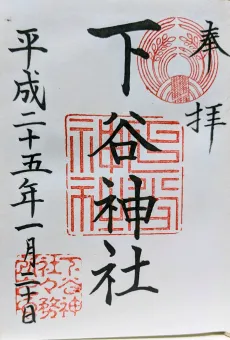 奉拝
下谷神社
平成二十五年一月二十日
下谷神
社々務